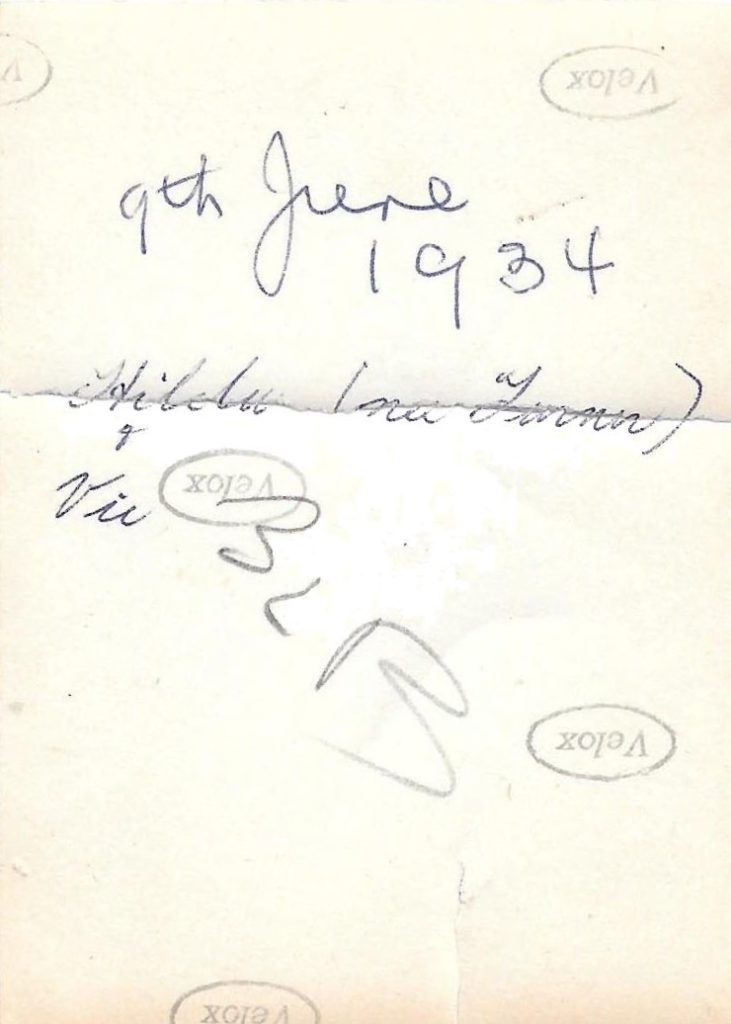 Velox
9th June
1934
Hilda (nee Turner)
&
Vic
Velox
Velox
Velox